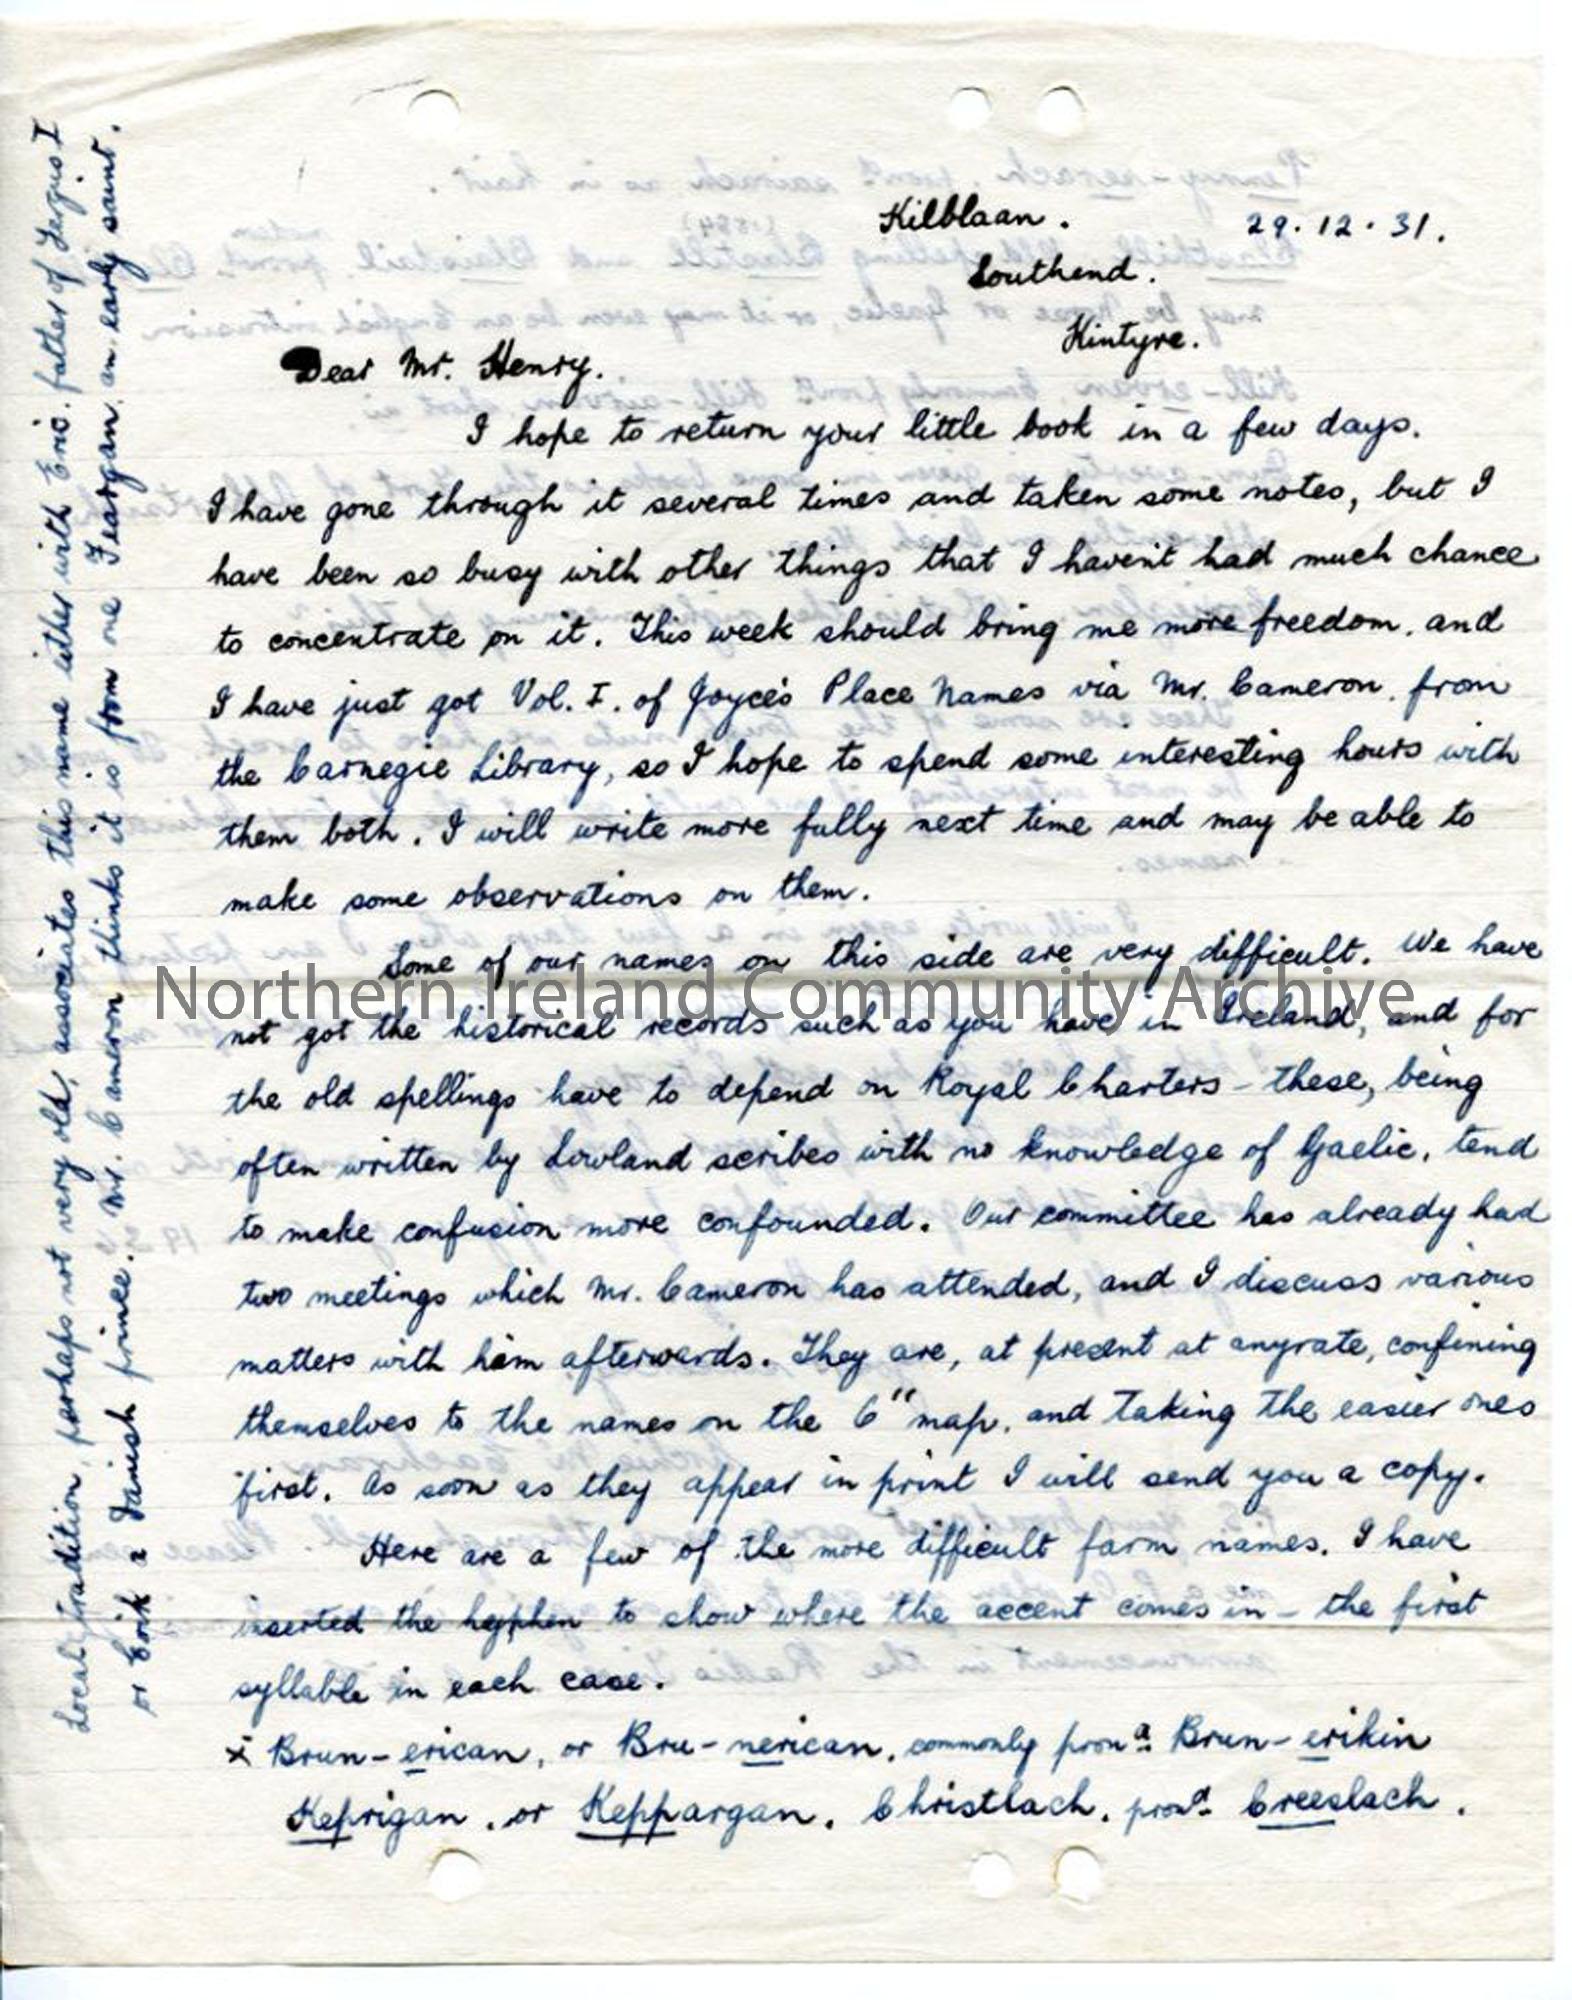 Kilblaan. 29.12.31.
Southend.
Kintyre.
Dear Mr. Henry.
I hope to return your little book in a few days.
I have gone through it several times and taken some notes, but I
have been so busy with other things that I haven't had much chance
to concentrate on it. This week should bring me more freedom, and
I have just got Vol. I. of Joyce's Place Names via Mr. Cameron, from
the Carnegie Library, so I hope to spend some interesting hours with
them both. I will write more fully next time and may be able to
make some observations on them.
Some of our names on this side are very difficult. We have
not got the historical records such as you have in Ireland, and for
the old spellings have to depend on Royal Charters – these, being
often written by Lowland scribes with no knowledge of Gaelic, tend
to make confusion more confounded. Our committee has already had
two meetings which Mr. Cameron has attended, and I discuss various
matters with him afterwards. They are, at present at anyrate, confining
themselves to the names on the 6" map, and taking the easier ones
first. As soon as they appear in print I will send you a copy.
Here are a few of the more difficult farm names. I have
inserted the hyphen to show where the accent comes in – the first
syllable in each case.
x Brun-erican, or Bru-nerican, commonly pron d. Brun-erikin
Keprigan, or Keppargan. Christlach, pron d. Creeslach.
Local tradition, perhaps not very old, associates this name either with Eric, father of Fergus I
or Erik a Danish prince. Mr. Cameron thinks it is from one Feargan, an early saint.
Northern Ireland Community Archive